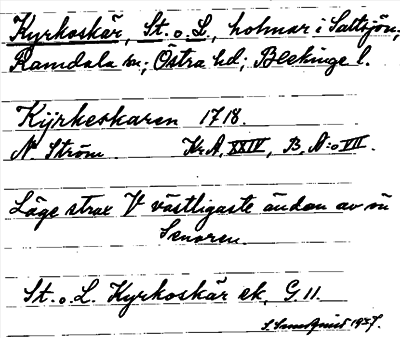 Kyrkoskär, St. o. L., holmar i Saltsjön;
Ramdala sn; Östra hd; Blekinge l.
Kijrkeskaren 1718.
N. Ström KrA, XXIV, B, A:o VII.
Läge strax V västligaste ändan av ön
Senoren.
St. o. L. Kyrkoskär ek. G. 11.
S. Sundquist 1927.